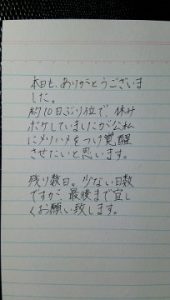 本日も、ありがとうございま
した。
約10日ぶり位で、休み
ボケしていましたが公私
にメリハリをつけ覚醒
させたいと思います。
残り数日。少ない日数
ですが、最後まで宜し
くお願い致します。